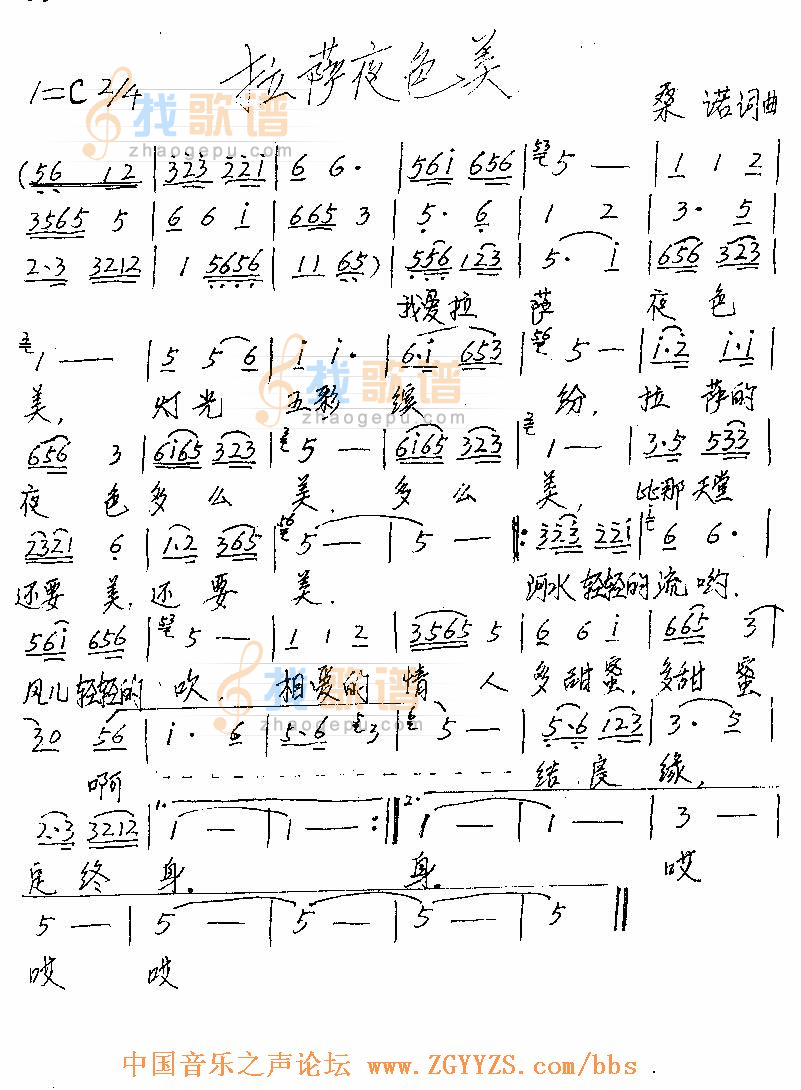 拉萨夜色美
1=C 2/4
桑诺词曲
找歌谱
zhaogepu.com
(56 12 | 323 221 | 6 6· | 561 656 | 5 — | 1 1 2 |
3565 5 | 6 6 1 | 665 3 | 5· 6 | 1 2 | 3· 5 |
2·3 3212 | 1 5656 | 11 65) | 556 123 | 5· 1 | 656 323 |
我爱拉 萨 夜 色
1 — | 5 5 6 | 1 1· | 6·1 653 | 56 5 — | 1·2 1·1 |
美, 灯光 五彩 缤 纷, 拉 萨的
找歌谱
zhaogepu.com
656 3 | 6165 323 | 5 — | 6165 323 | 1 — | 3·5 533 |
夜 色 多 么 美, 多 么 美, 比那天堂
2321 6 | 1·2 365 | 56 5 — | 5 — ‖: 323 221 | 6 6· |
还要 美, 还 要 美. 河水轻轻的流哟.
561 656 | 5 — | 1 1 2 | 3565 5 | 6 6 1 | 665 3 |
风儿轻轻的 吹. 相爱的 情 人 多甜蜜, 多甜 蜜
找歌谱
zhaogepu.com
30 56 | 1· 6 | 5·6 3 | 5 — | 5·6 123 | 3· 5 |
啊 结 良 缘,
2·3 3212 | 1. 1 — | 1 — :‖ 2. 1 — | 1 — | 3 — |
定 终 身. 身. 哎
5 — | 5 — | 5 — | 5 — | 5 ‖
哎 哎
中国音乐之声论坛 www.ZGYYZS.com/bbs